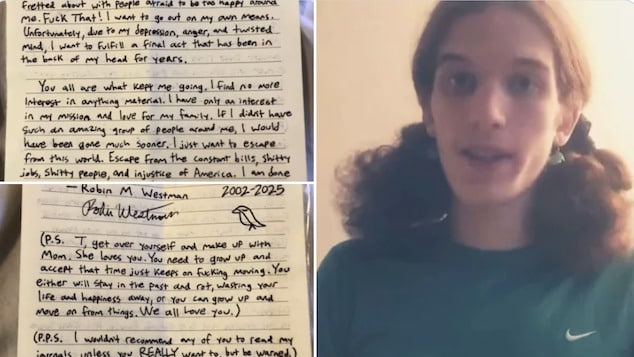 fretted about with people afraid to be too happy around
me. Fuck That! I want to go out on my own means.
Unfortunately, due to my depression, anger, and twisted
mind, I want to fulfill a final act that has been in
the back of my head for years.
You all are what kept me going. I find no more
interest in anything material. I have only an interest
in my mission and love for my family. If I didnt have
such an amazing group of people around me, I would
have been gone much sooner. I just want to escape
from this world. Escape from the constant bills, shitty
jobs, shitty people, and injustice of America. I am done
— Robin M Westman 2002-2025
Robin Westman
(P.S. T, get over yourself and make up with
Mom. She loves you. You need to grow up and
accept that time just keeps on fucking moving. You
either will stay in the past and rot, wasting your
life and happiness away, or you can grow up and
move on from things. We all love you.)
(P.P.S. I wouldn't recommend any of you to read my
journals unless you REALLY want to, but be warned.)